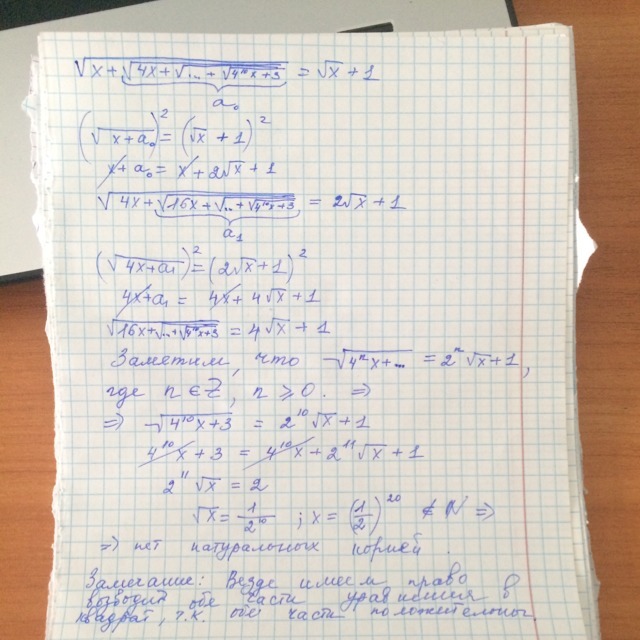 √(x+√(4x+√(...+√(4ⁿx+3)))) = √x + 1
a₀
(√(x+a₀))² = (√x + 1)²
x + a₀ = x + 2√x + 1
√(4x+√(16x+√(...+√(4ⁿx+3)))) = 2√x + 1
a₁
(√(4x+a₁))² = (2√x + 1)²
4x+a₁ = 4x + 4√x + 1
√(16x+√(...+√(4ⁿx+3))) = 4√x + 1
Заметим, что √(4ⁿx+...) = 2ⁿ√x+1,
где n ∈ Z, n ⩾ 0. ⇒
⇒ √(4¹⁰x+3) = 2¹⁰√x + 1
4¹⁰x + 3 = 4¹⁰x + 2¹¹√x + 1
2¹¹√x = 2
√x = 1/2¹⁰ ; x = (1/2)²⁰ ∉ N ⇒
⇒ нет натуральных корней.
Замечание: Везде имеем право
возводить обе части уравнения в
квадрат, т.к. обе части положительны.